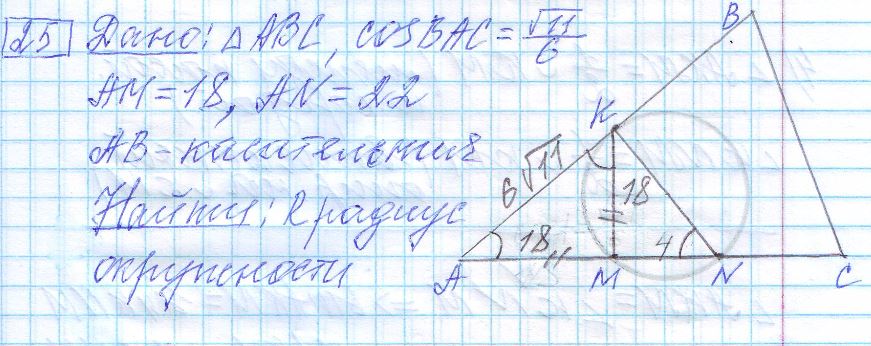 25 Дано: △ABC, cosBAC = √11/6
AM = 18, AN = 22
AB - касательная
Найти: R радиус
окружности
B
K
6√11
18
18
4
A
M
N
C